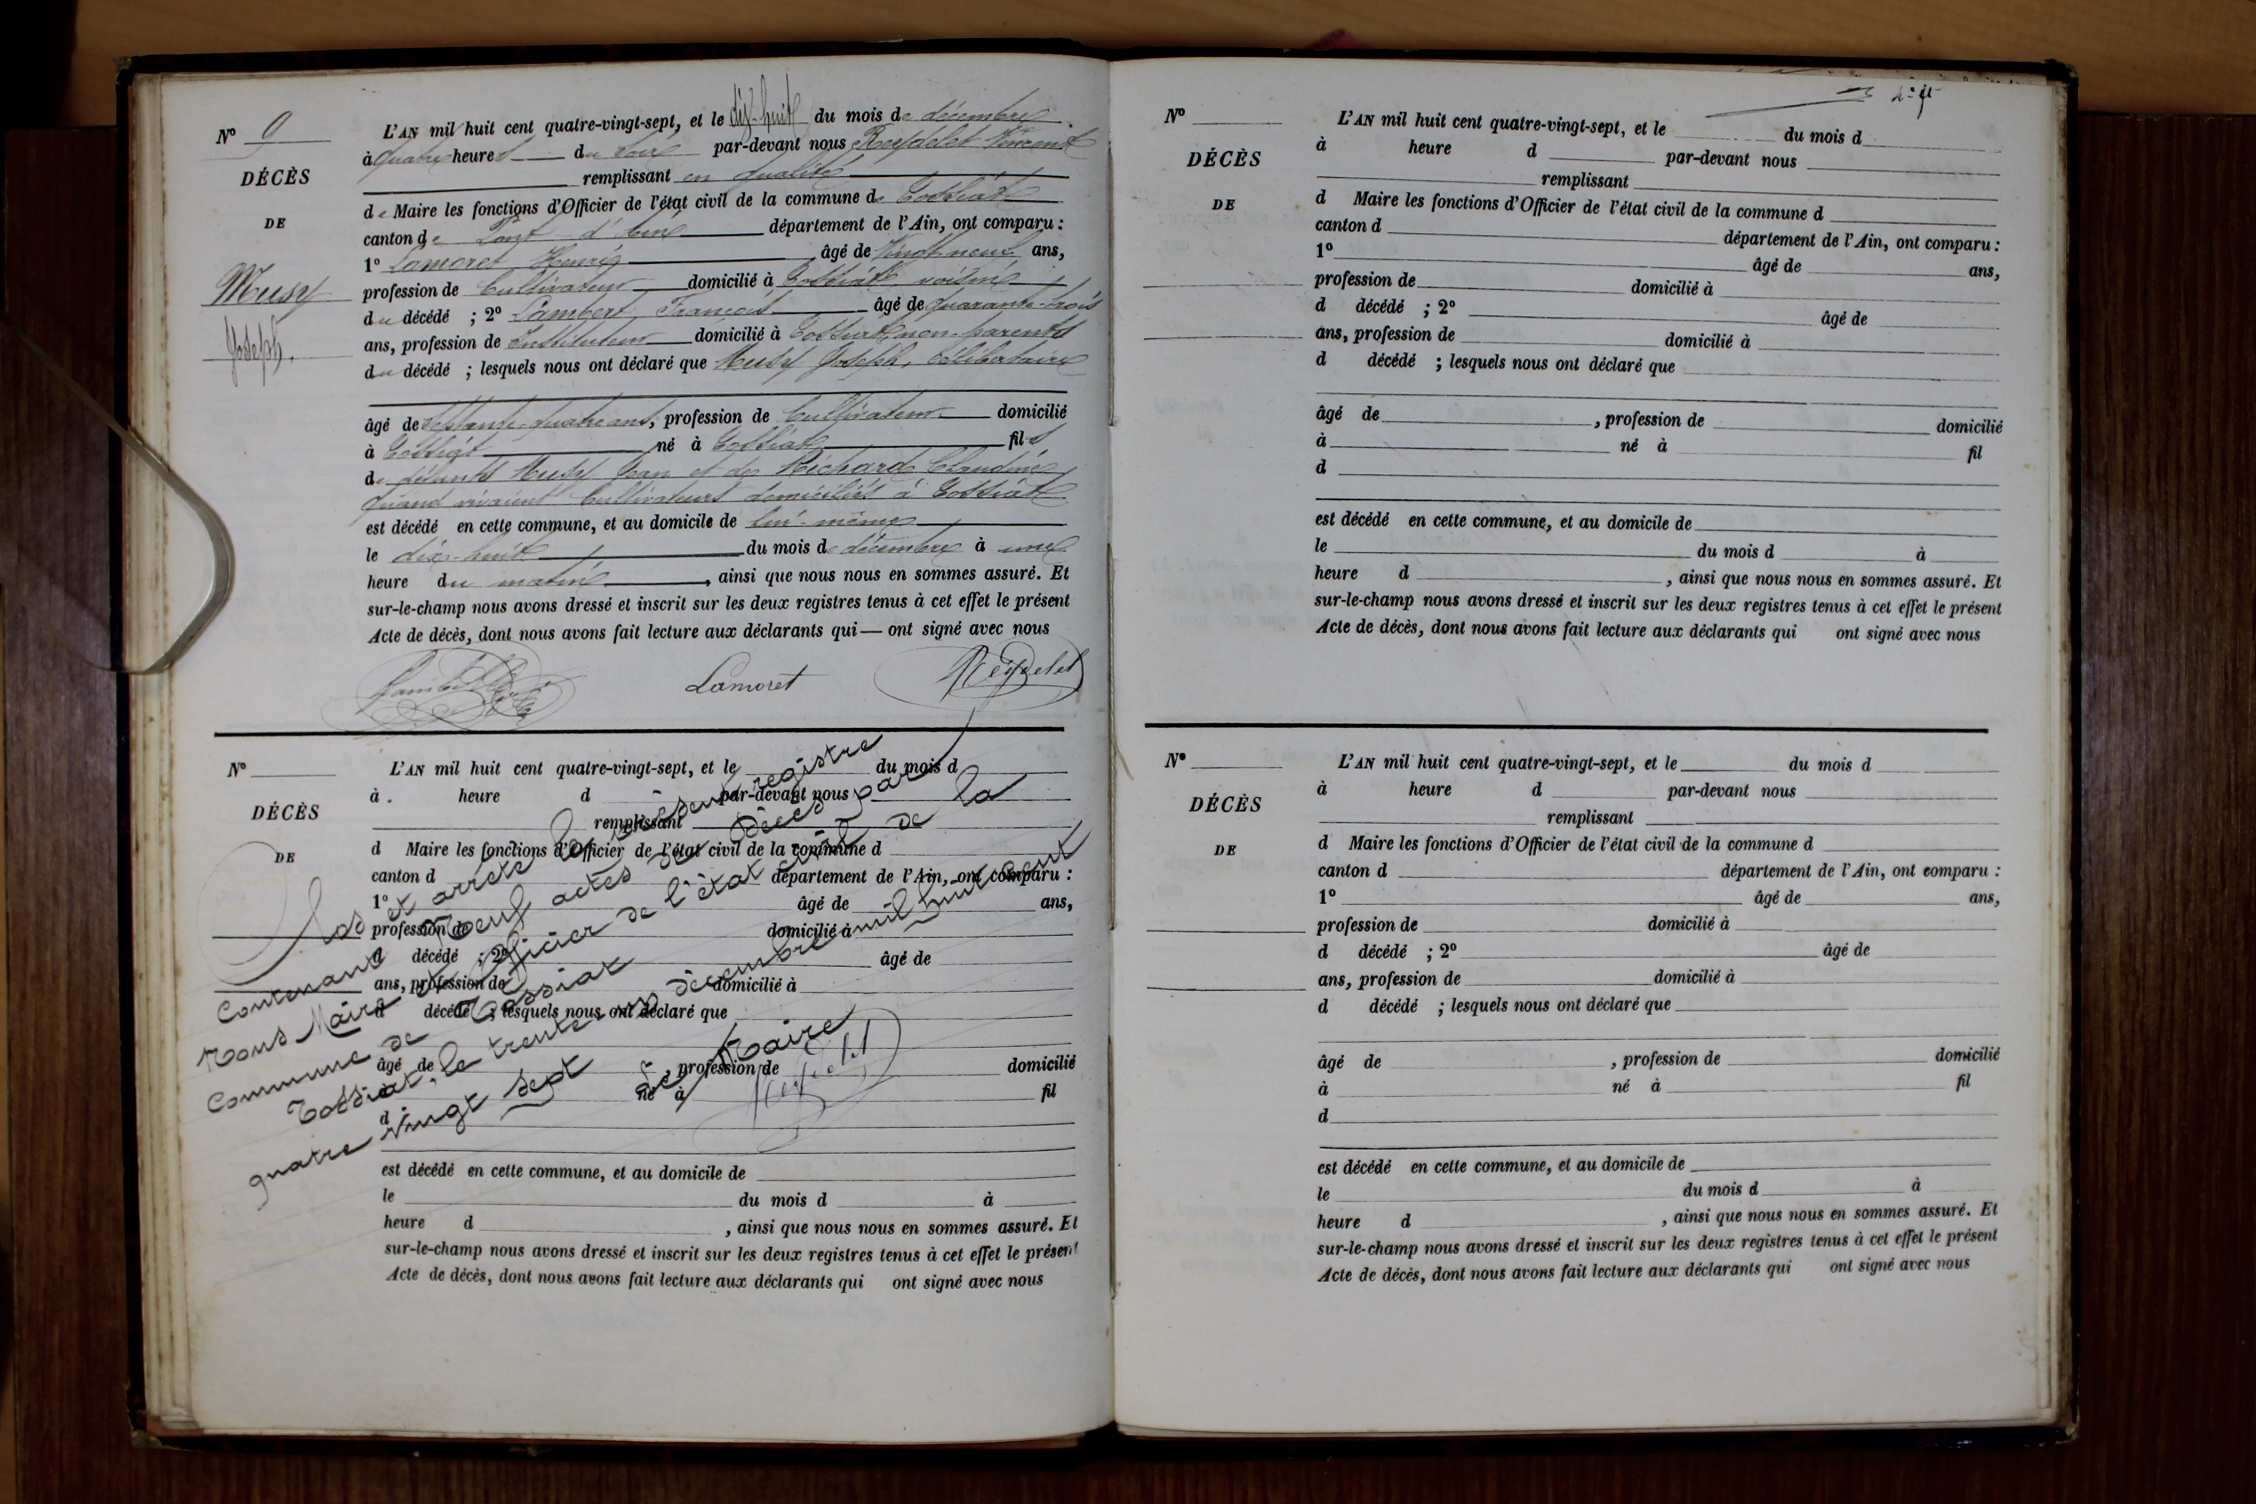 N° 9
DÉCÈS
DE
Musy
Joseph.
L'AN mil huit cent quatre-vingt-sept, et le dix-huit du mois de décembre
à quatre heures du soir par-devant nous Reydelet Vincent
remplissant en qualité
de Maire les fonctions d'Officier de l'état civil de la commune de Tossiat
canton de Pont d'Ain département de l'Ain, ont comparu :
1° Lamoret Henri âgé de vingt-neuf ans,
profession de Cultivateur domicilié à Tossiat voisin
du décédé ; 2° Lambert François âgé de quarante-trois
ans, profession de Instituteur domicilié à Tossiat, non parents
du décédé ; lesquels nous ont déclaré que Musy Joseph, célibataire
âgé de septante-quatre ans, profession de Cultivateur domicilié
à Tossiat né à Tossiat fils
de défunts Musy Jean et de Richard Claudine
quand vivaient Cultivateurs domiciliés à Tossiat
est décédé en cette commune, et au domicile de lui-même
le dix-huit du mois de décembre à une
heure du matin, ainsi que nous nous en sommes assuré. Et
sur-le-champ nous avons dressé et inscrit sur les deux registres tenus à cet effet le présent
Acte de décès, dont nous avons fait lecture aux déclarants qui — ont signé avec nous
Lambert Lamoret Reydelet
N°
DÉCÈS
DE
L'AN mil huit cent quatre-vingt-sept, et le du mois d
à . heure d par-devant nous
remplissant
d Maire les fonctions d'Officier de l'état civil de la commune d
canton d département de l'Ain, ont comparu :
1° âgé de ans,
profession de domicilié à
d décédé ; 2° âgé de
ans, profession de domicilié à
d décédé ; lesquels nous ont déclaré que
âgé de , profession de domicilié
à né à fil
d
est décédé en cette commune, et au domicile de
le du mois d à
heure d , ainsi que nous nous en sommes assuré. Et
sur-le-champ nous avons dressé et inscrit sur les deux registres tenus à cet effet le présent
Acte de décès, dont nous avons fait lecture aux déclarants qui ont signé avec nous
Clos et arrêté le présent registre
Contenant Neuf actes de décès par
Nous Maire et Officier de l'état civil de la
Commune de Tossiat
Tossiat, le trente-un décembre mil huit cent
quatre vingt sept
Le Maire
Reydelet
N°
DÉCÈS
DE
L'AN mil huit cent quatre-vingt-sept, et le du mois d
à heure d par-devant nous
remplissant
d Maire les fonctions d'Officier de l'état civil de la commune d
canton d département de l'Ain, ont comparu :
1° âgé de ans,
profession de domicilié à
d décédé ; 2° âgé de
ans, profession de domicilié à
d décédé ; lesquels nous ont déclaré que
âgé de , profession de domicilié
à né à fil
d
est décédé en cette commune, et au domicile de
le du mois d à
heure d , ainsi que nous nous en sommes assuré. Et
sur-le-champ nous avons dressé et inscrit sur les deux registres tenus à cet effet le présent
Acte de décès, dont nous avons fait lecture aux déclarants qui ont signé avec nous
N°
DÉCÈS
DE
L'AN mil huit cent quatre-vingt-sept, et le du mois d
à heure d par-devant nous
remplissant
d Maire les fonctions d'Officier de l'état civil de la commune d
canton d département de l'Ain, ont comparu :
1° âgé de ans,
profession de domicilié à
d décédé ; 2° âgé de
ans, profession de domicilié à
d décédé ; lesquels nous ont déclaré que
âgé de , profession de domicilié
à né à fil
d
est décédé en cette commune, et au domicile de
le du mois d à
heure d , ainsi que nous nous en sommes assuré. Et
sur-le-champ nous avons dressé et inscrit sur les deux registres tenus à cet effet le présent
Acte de décès, dont nous avons fait lecture aux déclarants qui ont signé avec nous